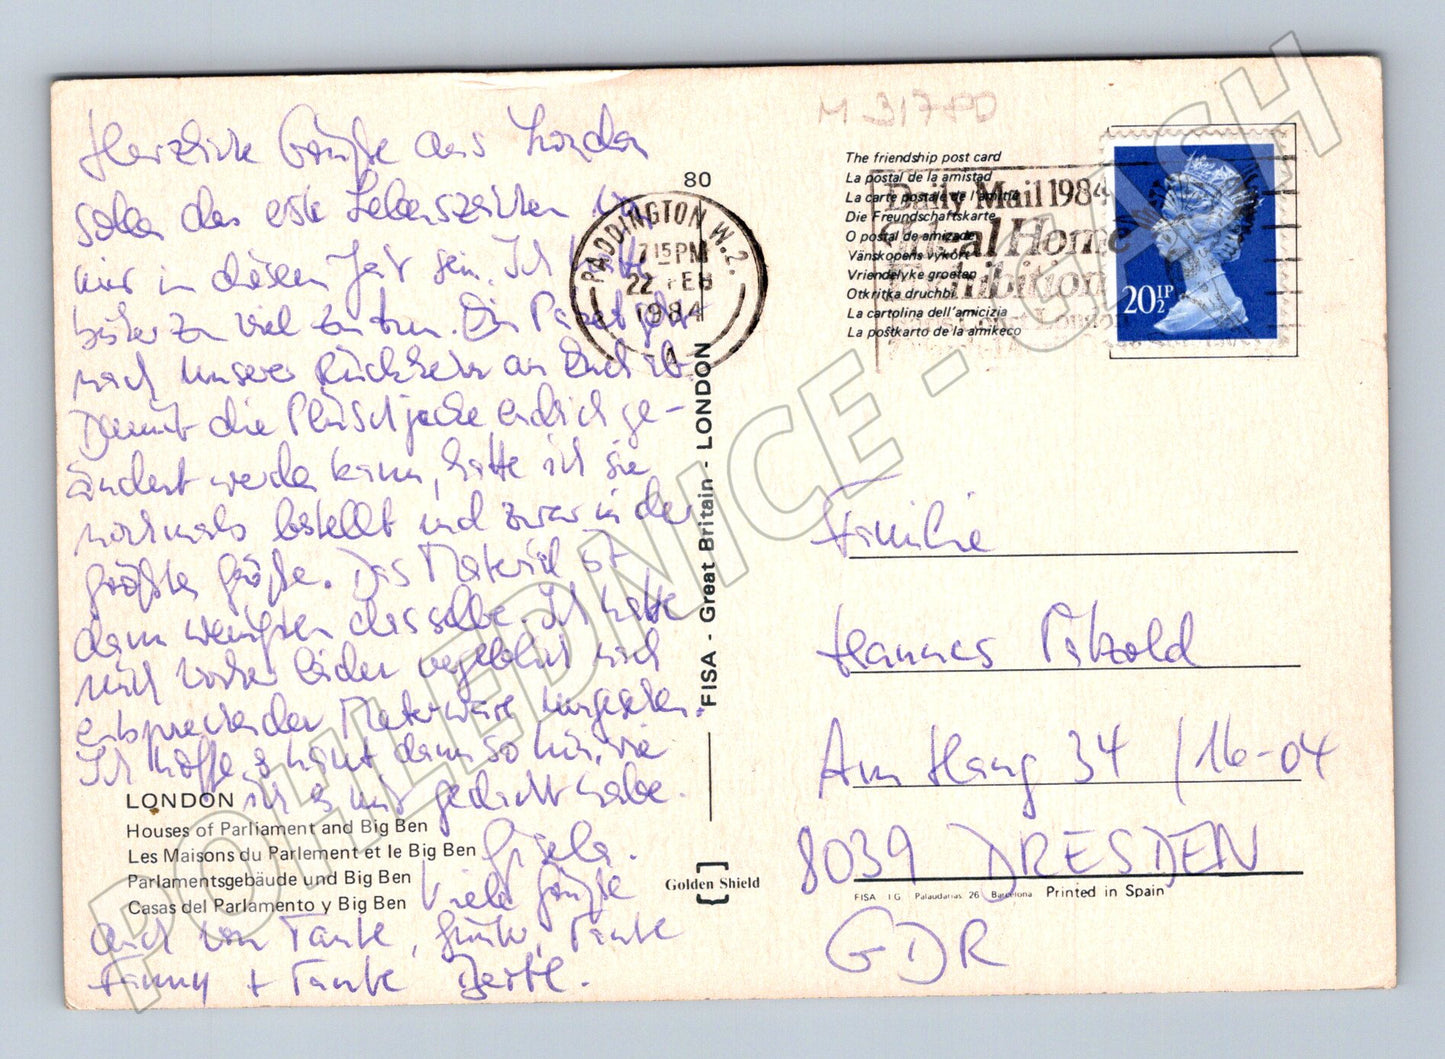 M 31780
Herzliche Grüße aus London
sollen das erste Lebenszeichen von
mir in diesem Jahr sein. Ich hatte
bisher zu viel zu tun. Ein Paket geht
nach unserer Rückkehr an Euch ab.
Damit die Plüschjacke endlich ge-
ändert werden kann, hatte ich sie
nochmals bestellt und zwar in der
größten Größe. Das Material ist
dann wenigstens dasselbe. Ich hatte
mich vorher leider vergeblich nach
entsprechender Meterware umgesehen.
Ich hoffe, es haut dann so hin, wie
ich es mir gedacht habe.
Gisela.
Viele Grüße
auch von Tante, Tante
Fanny + Tante
LONDON
Houses of Parliament and Big Ben
Les Maisons du Parlement et le Big Ben
Parlamentsgebäude und Big Ben
Casas del Parlamento y Big Ben
80
PADDINGTON W.2.
7 15 PM
22 FEB
1984
A
FISA - Great Britain - LONDON
Golden Shield
The friendship post card
La postal de la amistad
La carte postale de l'amitié
Die Freundschaftskarte
O postal de amizade
Vänskopens vykort
Vriendelyke groeten
Otkritka druchbi
La cartolina dell'amicizia
La poŝtkarto de la amikeco
Daily Mail 1984
Ideal Home
Exhibition
London
20½P
Familie
Hannes Pätzold
Am Hang 34 / 16-04
8039 DRESDEN
GDR
FISA I.G. Palaudarias, 26 Barcelona Printed in Spain
POHLEDNICE - CASH